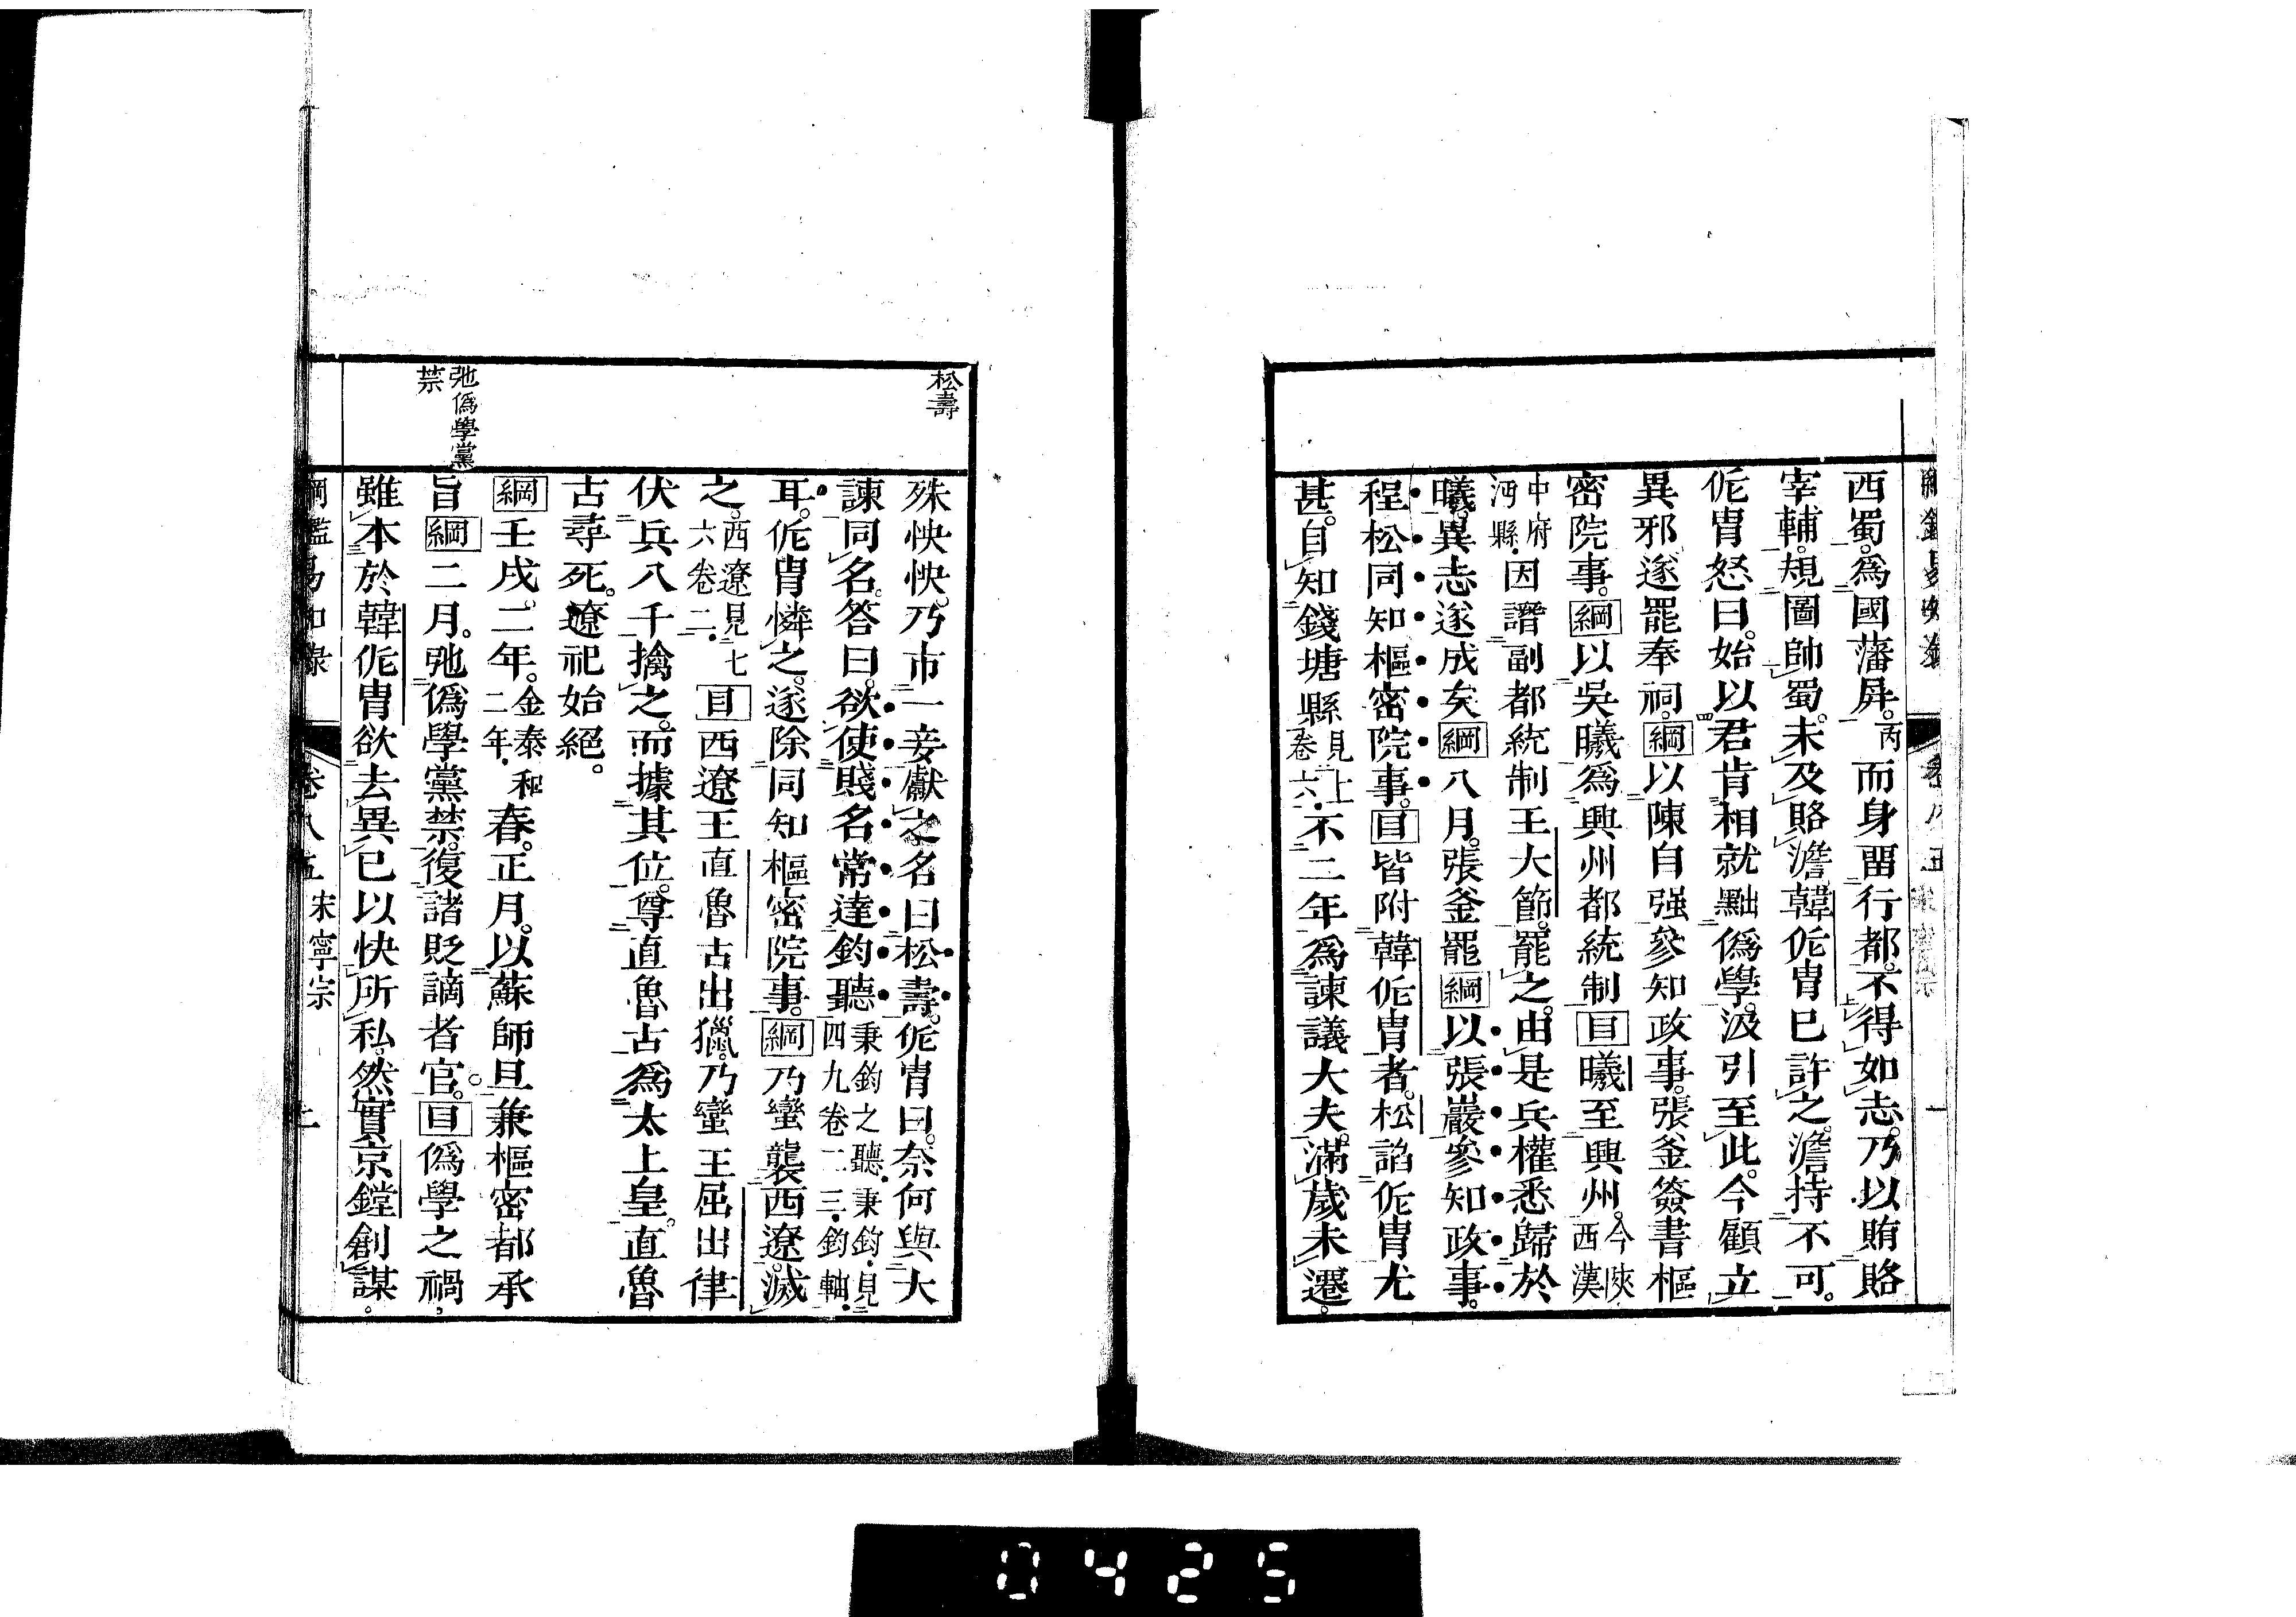 西蜀。爲國藩屏。丙而身畱行都。不得如志。乃以賄賂
宰輔。規圖帥蜀。未及賂澹。韓侂冑已許之。澹持不可。
侂冑怒曰。始以君肯相就黜僞學。汲引至此。今顧立
異邪。遂罷奉祠。綱以陳自强參知政事。張釜簽書樞
密院事。綱以吳曦爲興州都統制目曦至興州。今陝西漢
中府沔縣。因譖副都統制王大節。罷之。由是兵權悉歸於
曦。異志遂成矣綱八月。張釜罷綱以張巖參知政事。
程松同知樞密院事。目皆附韓侂冑者。松諂侂冑尤
甚。自知錢塘縣見上卷六。不二年爲諫議大夫。滿歲未遷。
松壽
殊怏怏。乃市一妾獻之。名曰松壽。侂冑曰。奈何與大
諫同名。答曰。欲使賤名常達鈞聽秉鈞之聽。秉鈞。見四九卷二三。鈞軸。
耳。侂冑憐之。遂除同知樞密院事。綱乃蠻襲西遼。滅
之。西遼見七六卷二。目西遼王直魯古出獵。乃蠻王屈出律
伏兵八千擒之。而據其位。尊直魯古爲太上皇。直魯
古尋死。遼祀始絕。
綱壬戌。二年。金泰和二年。春。正月。以蘇師旦兼樞密都承
弛僞學黨禁
旨綱二月。弛僞學黨禁。復諸貶謫者官。目僞學之禍。
雖本於韓侂冑欲去異已以快所私。然實京鏜創謀。
綱鑑易知錄 卷八五 宋寧宗